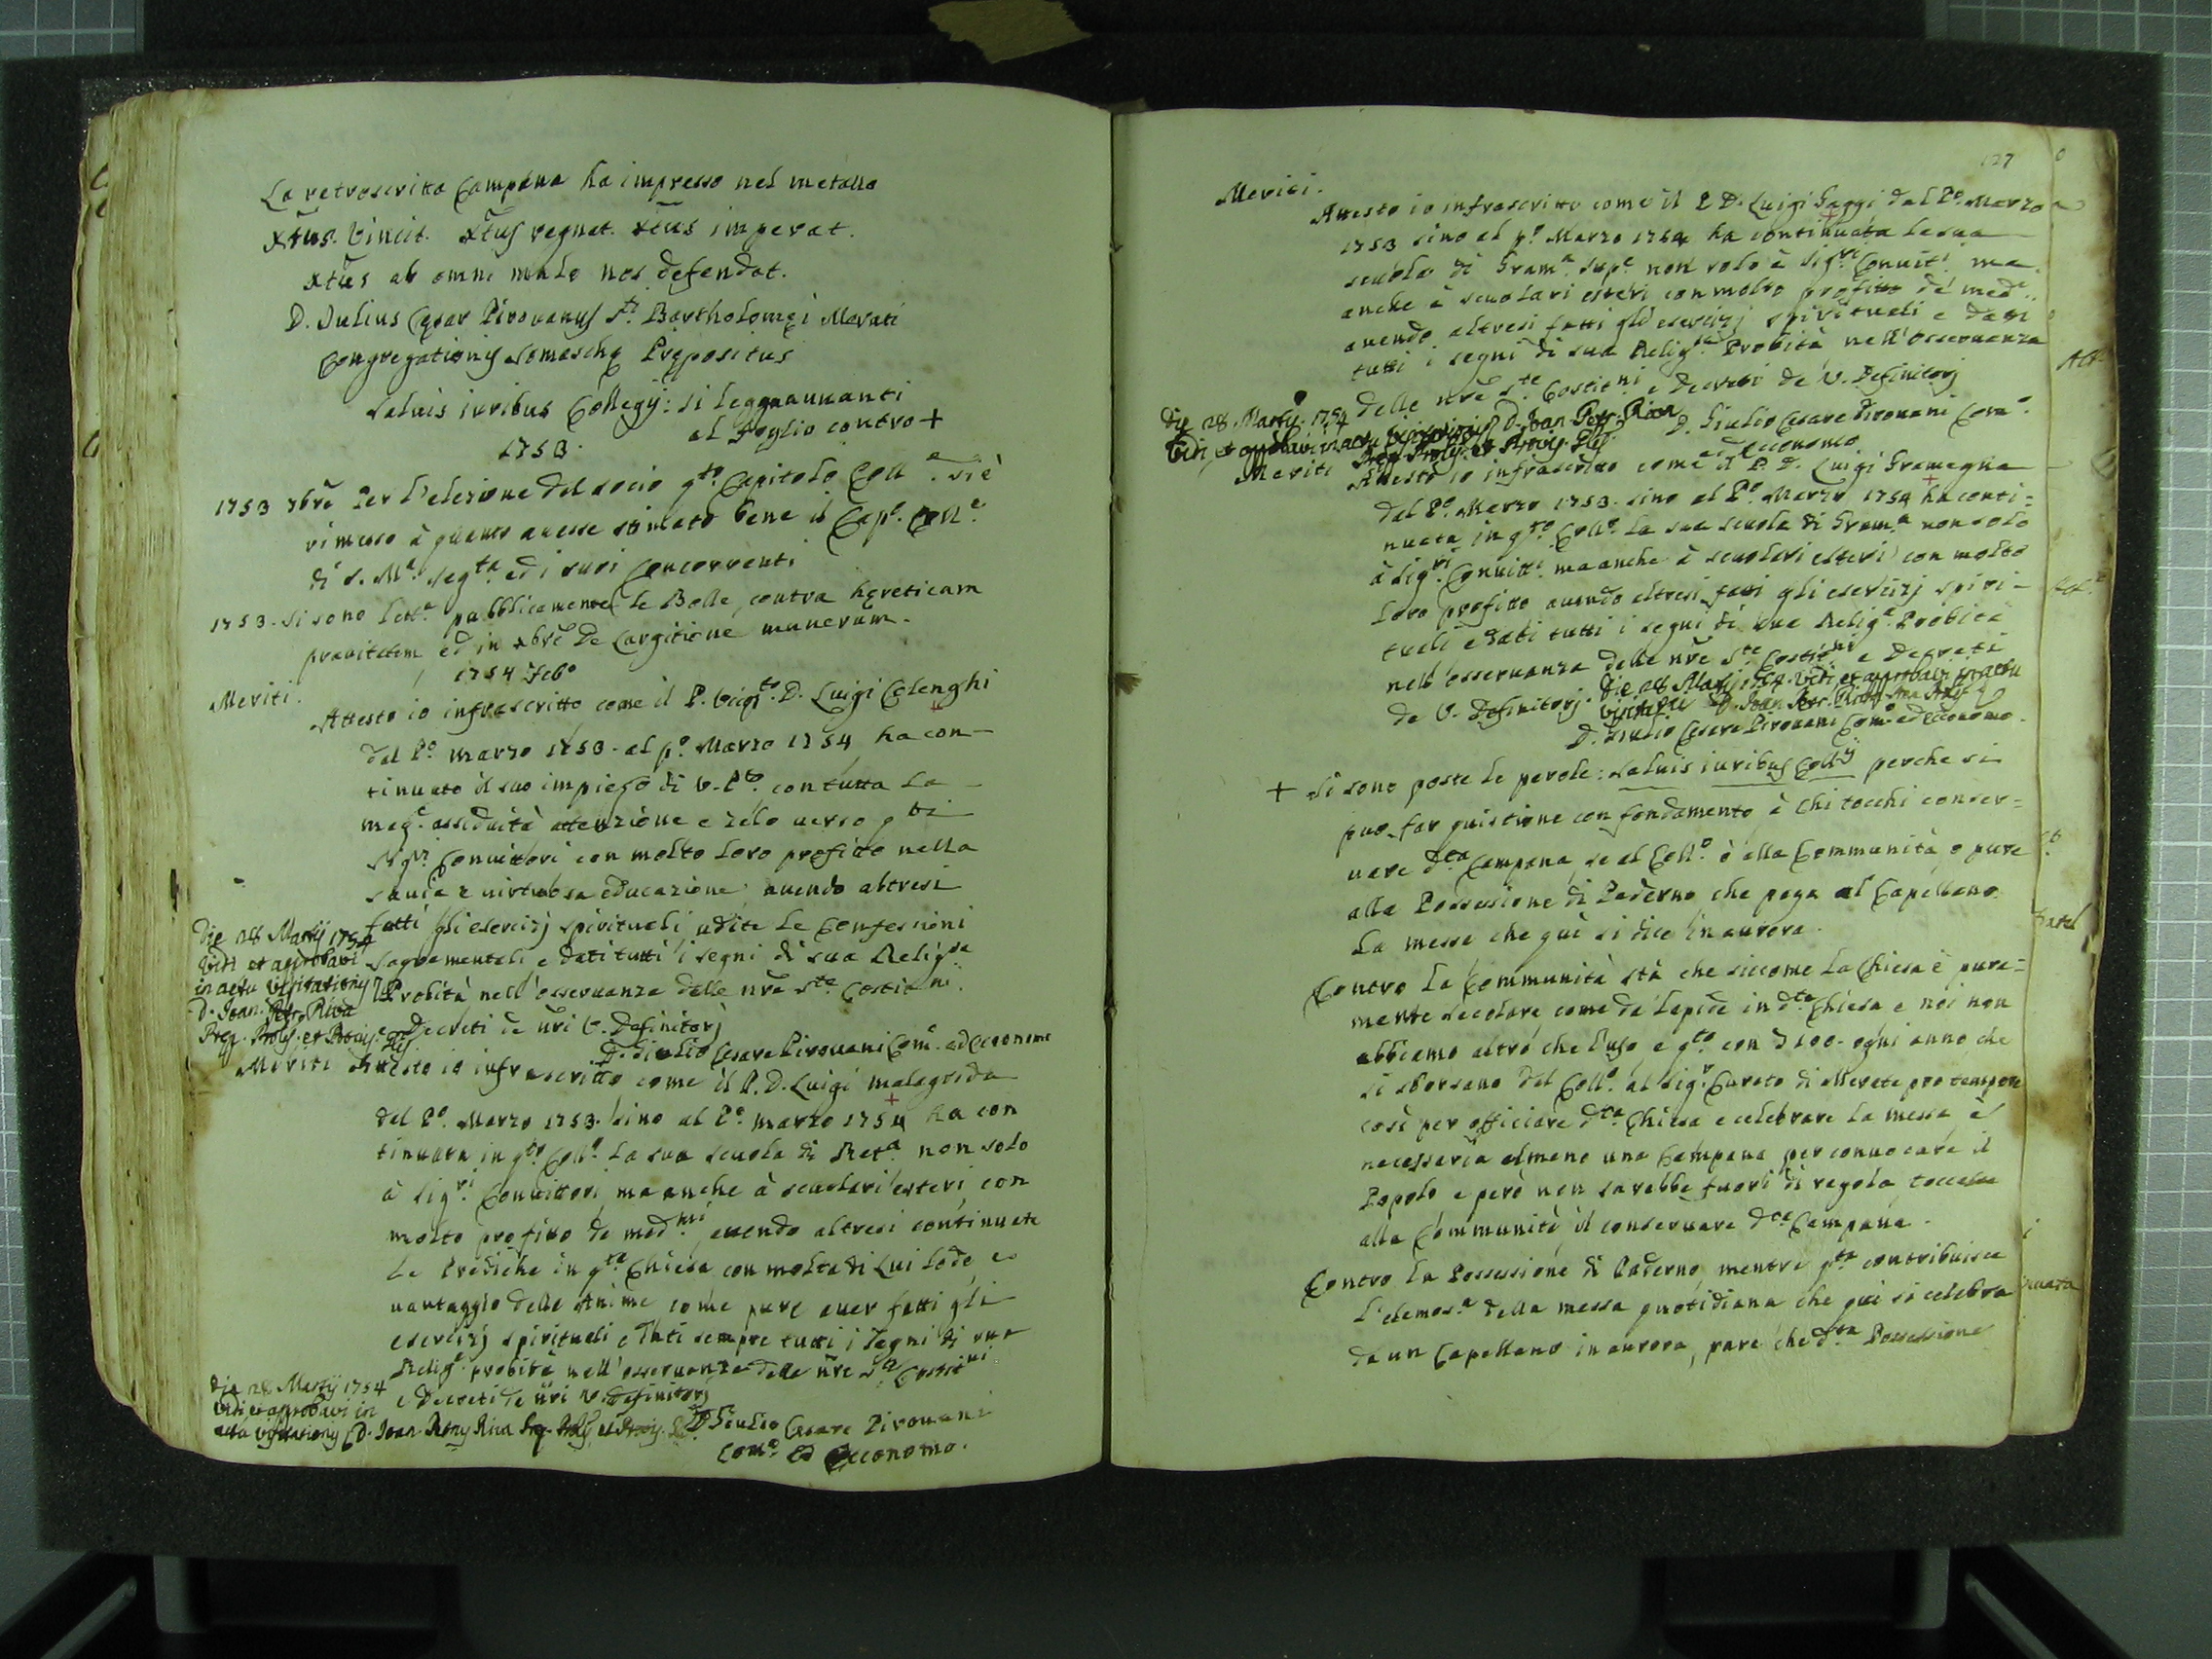 La retroscritta Campana ha impresso nel metallo
Xtus. Vincit. Xtus regnat. Xtus imperat.
Xtus ab omni malo nos defendat.
D. Iulius Cęsar Pirovanus Sti. Bartholomęi Merati
Congregationis Somaschę Prępositus
Salvis iuribus Collegij: si legga avvanti
al foglio contro +
1753.
1753 7bre Per l'elezione del socio qto. Capitolo Colle. si è
rimesso à quanto avesse stimato bene il Capo. Colle.
di S. Ma. Segta. ed i suoi Concorrenti
1753. Si sono lette pubblicamente le Bolle, contra hęreticam
pravitatem ed in xbre De Largitione munerum.
1754 Febo
Meriti.
Attesto io infrascritto come il P. D. Luigi Celenghi
dal Po. marzo 1753. al po. Marzo 1754 ha con-
tinuato il suo impiego di V. con tutta la
mage. assiduità attenzione e zelo verso qti
Sigri Convittori con molto loro profitto nella
savia e virtuosa educazione, avendo altresi
fatti gli esercizj spirituali udite le Confessioni
sagramentali e dati tutti i segni di sua Religsa
Probità nell'osservanza delle nre Ste. Costitni.
e Decreti de nri V. Definitorj
D. Giulio Cesare Pirovani Como. ed Economo
Die 28 Martij 1754
Vidi et approbavi
in actu visitationis
D. Ioan. Petr. Riva
Pręp. Prolis. et Provis. Elis.
Meriti Attesto io infrascritto come il P. D. Luigi malagrida
dal Po. Marzo 1753. sino al Po. marzo 1754 ha con
tinuata in qto. Collo. la sua scuola di Reta. non solo
à Sigri. Convittori, ma anche à scuolari esteri, con
molto profitto de medmi. avendo altresi continuate
le Prediche in qta Chiesa con molta di Lui lode, e
vantaggio delle Anime come pure aver fatti gli
esercizj spirituali e dati sempre tutti i segni di sua
Religa. probità nell'osservanza delle nre Ste Costitni
e Decreti de nri V. Definitorj
Die 28 Martij 1754
Vidi et approbavi in
actu visitationis D. Ioan. Petrus Riva
D. Giulio Cesare Pirovani
Como. Ed Economo.
127
Meriti.
Attesto io infrascritto come il P. D. Luigi Gaggi dal Po. Marzo
1753 sino al po. Marzo 1754 ha continuata la sua
scuola di Grama. supe. non solo à Sigri Convitti. ma
anche à scuolari esteri con molto profitto de med.
avendo altresi fatti gli esercizj spirituali e dati
tutti i segni di sua Religsa. Probità nell'osservanza
delle nre Ste. Costitni e Decreti de V. Definitorj
D. Giulio Cesare Pirovani Como.
ed Economo
Die 28. Martij. 1754
Vidi, et approbavi in actu visitationis D. Ioan. Petr. Riva
Pręp. Prolis. et Provis. Elis.
Meriti Attesto io infrascritto come il P. D. Luigi Gramegna
dal Po. Marzo 1753. sino al Po. Marzo 1754 ha conti=
nuata in qto. Collo. la sua scuola di Grama non solo
à Sigri. Convitti. ma anche à scuolari esteri con molto
loro profitto avendo altresi fatti gli esercizj spiri-
tuali e dati tutti i segni di sua Religa. Probità
nell'osservanza delle nre Ste Costitni e Decreti
de V. Definitorj. Die 28 Martij 1754. Vidi, et approbavi in actu
visitationis D. Ioan. Petr. Riva
D. Giulio Cesare Pirovani Como. ed Economo.
+ Si sono poste le parole: salvis iuribus Collij perche si
puo far quistione con fondamento à chi tocchi conser=
vare dta Campana, se al Collo. ò alla Communità o pure
alla Possessione di Paderno che paga al Capellano
la messa che quì si dice in aurora.
Contro la Communità stà che siccome la Chiesa è pura=
mente secolare come da Lapide in dta Chiesa e noi non
abbiamo altro che l'uso e qto. con 100. ogni anno che
si sborsano dal Collo. al Sigr. Curato di Merate pro tempore
così per officiare dta. Chiesa e celebrare la messa è
necessaria almeno una Campana per convocare il
Popolo e però non sarebbe fuori di regola toccasse
alla Communità il conservare dta Campana.
Contro la Possessione di Paderno, mentre qta contribuisce
l'elemosa. della messa quotidiana che qui si celebra
da un Capellano in aurora, pare che dta Possessione